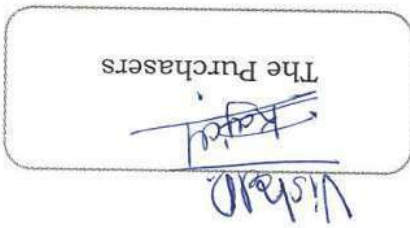 Vishal D.
Rajal
The Purchasers